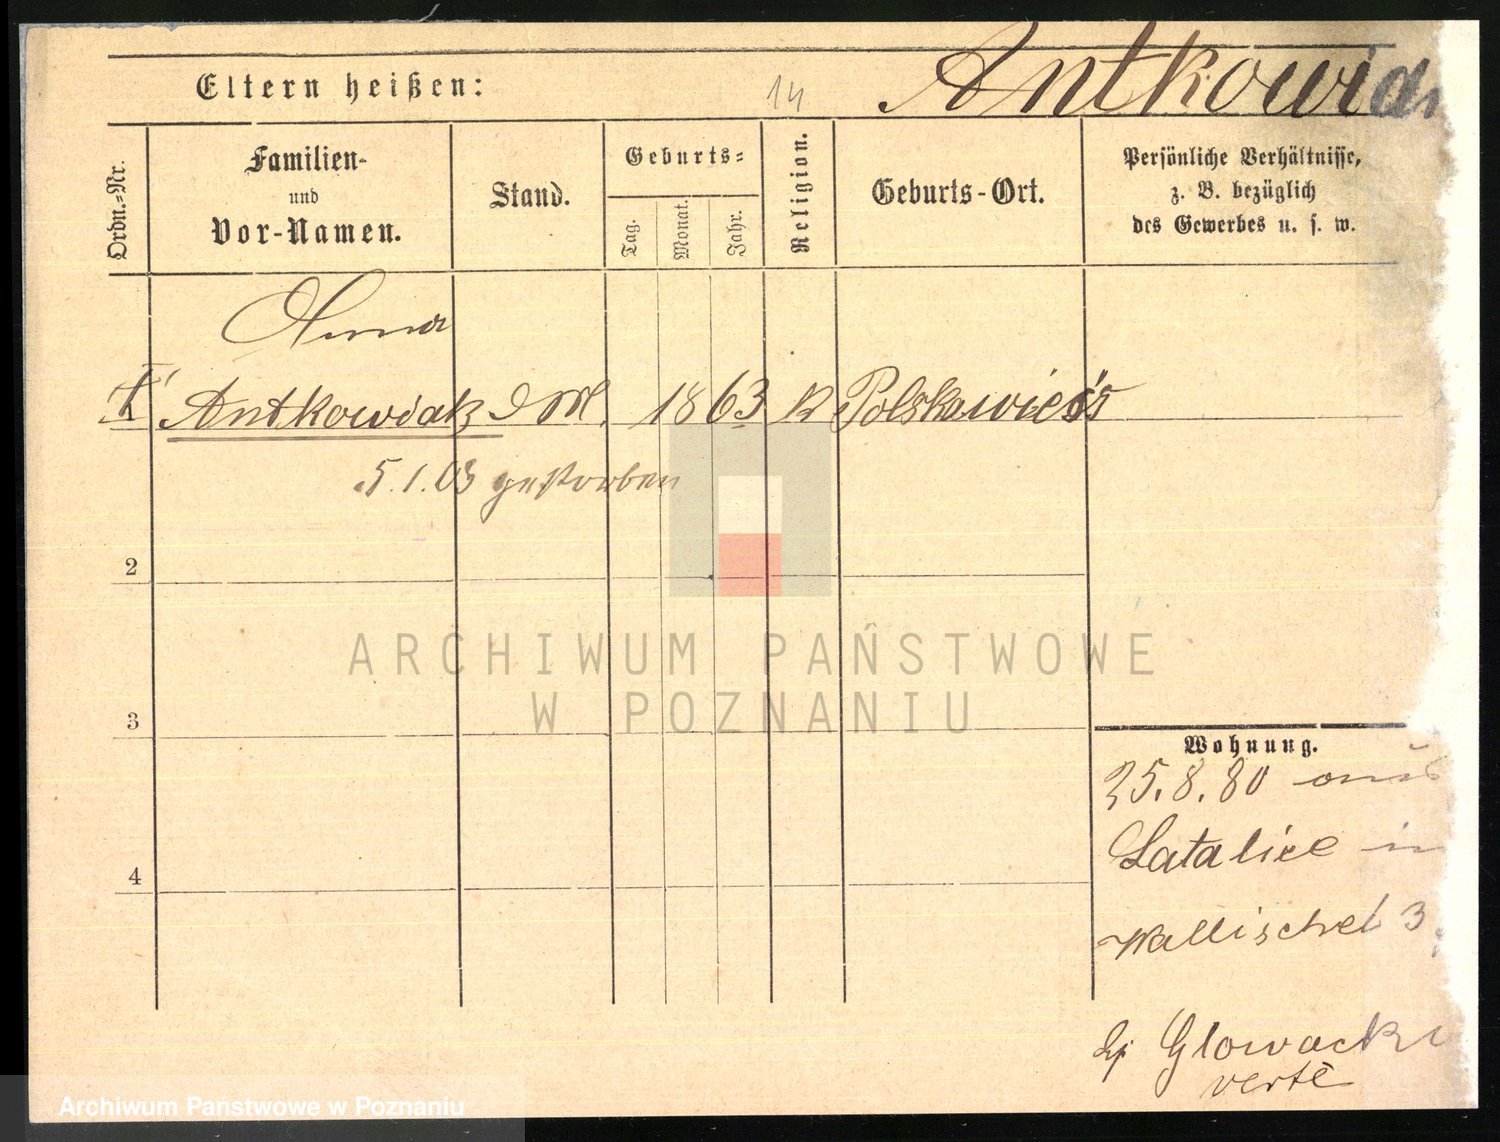 Antkowia
Eltern heißen:
14
Ordn.-Nr.
Familien-
und
Vor-Namen.
Stand.
Geburts-
Tag.
Monat.
Jahr.
Religion.
Geburts-Ort.
Persönliche Verhältnisse,
z. B. bezüglich
des Gewerbes u. s. w.
Anna
1 Antkowiak 1863 K Polskawieś
5.1.03 gestorben
2
3
4
Wohnung.
25.8.80 aus
Latalice in
Wallischei 3
Glowacki
verte
ARCHIWUM PAŃSTWOWE
W POZNANIU
Archiwum Panstwowe w Poznaniu